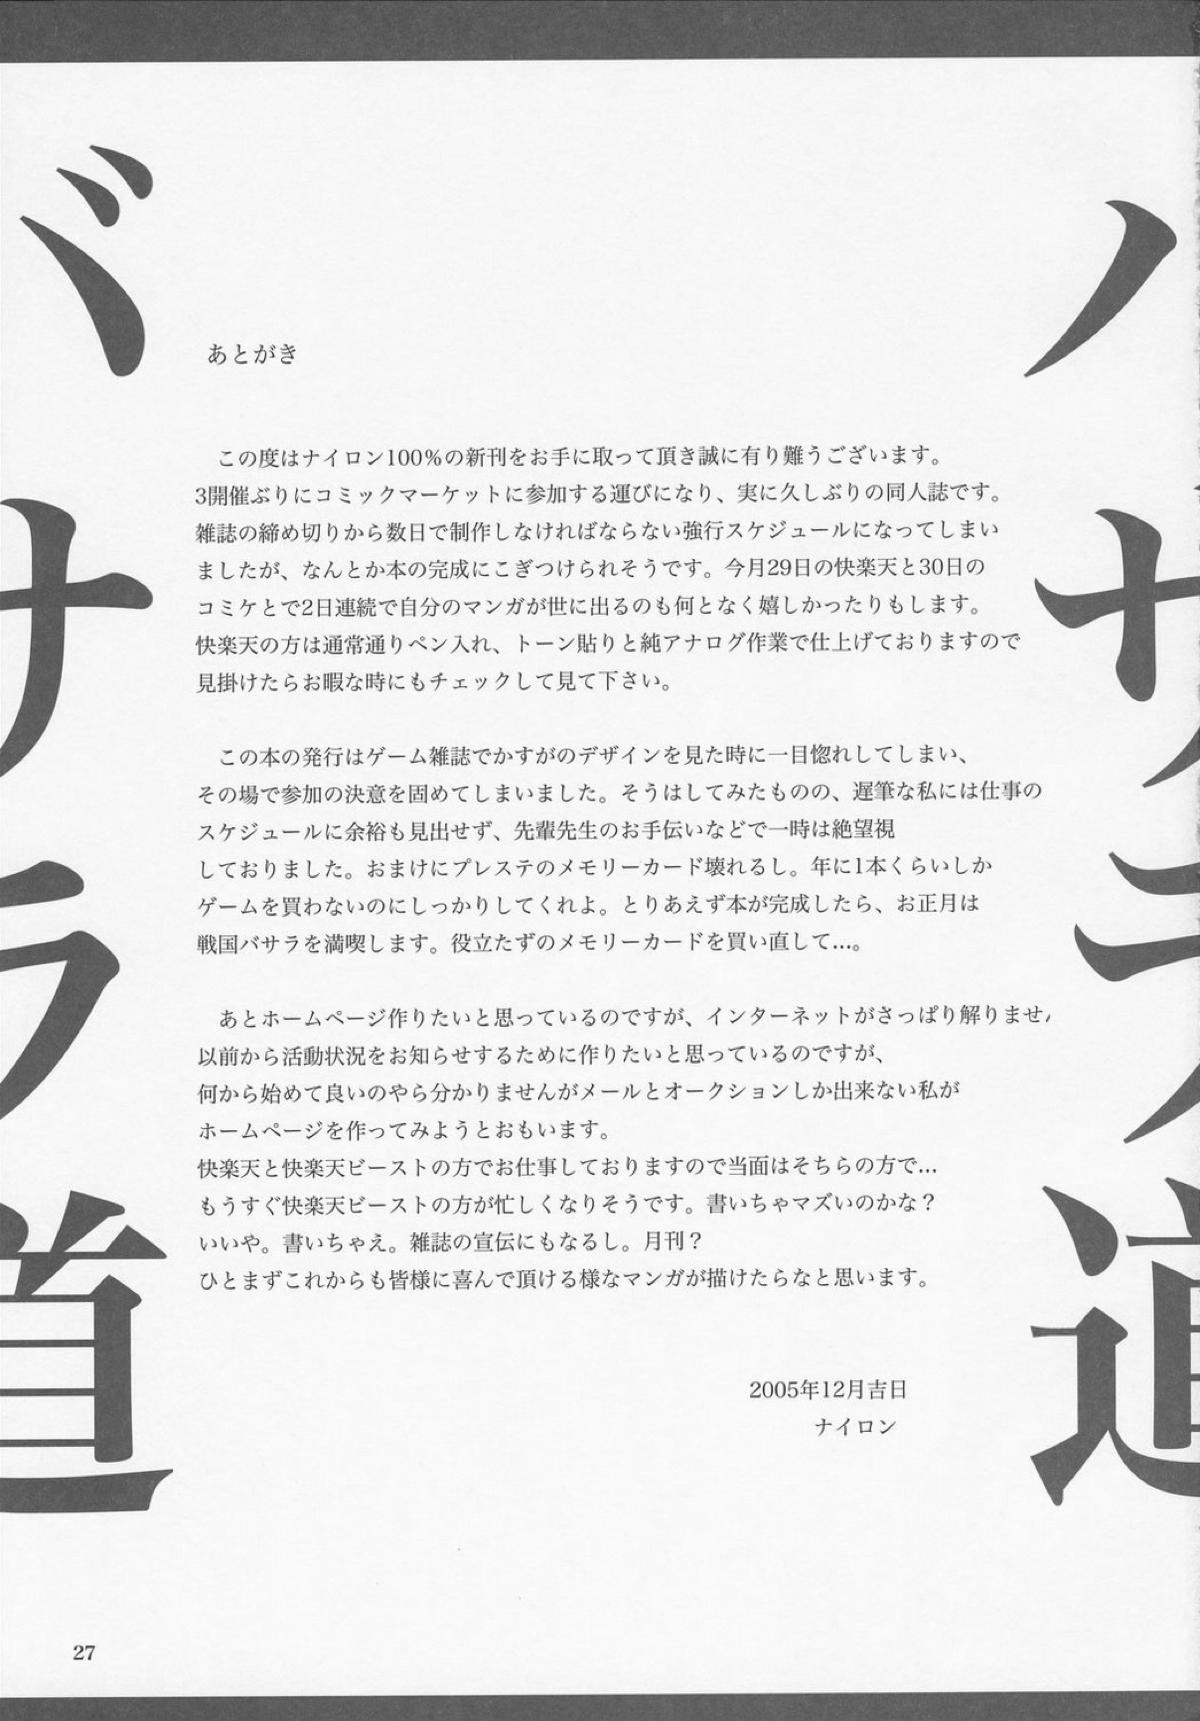 バサラ道
バサラ道
あとがき
この度はナイロン100%の新刊をお手に取って頂き誠に有り難うございます。
3開催ぶりにコミックマーケットに参加する運びになり、実に久しぶりの同人誌です。
雑誌の締め切りから数日で制作しなければならない強行スケジュールになってしまい
ましたが、なんとか本の完成にこぎつけられそうです。今月29日の快楽天と30日の
コミケとで2日連続で自分のマンガが世に出るのも何となく嬉しかったりもします。
快楽天の方は通常通りペン入れ、トーン貼りと純アナログ作業で仕上げておりますので
見掛けたらお暇な時にもチェックして見て下さい。
この本の発行はゲーム雑誌でかすがのデザインを見た時に一目惚れしてしまい、
その場で参加の決意を固めてしまいました。そうはしてみたものの、遅筆な私には仕事の
スケジュールに余裕も見出せず、先輩先生のお手伝いなどで一時は絶望視
しておりました。おまけにプレステのメモリーカード壊れるし。年に1本くらいしか
ゲームを買わないのにしっかりしてくれよ。とりあえず本が完成したら、お正月は
戦国バサラを満喫します。役立たずのメモリーカードを買い直して…。
あとホームページ作りたいと思っているのですが、インターネットがさっぱり解りませ
以前から活動状況をお知らせするために作りたいと思っているのですが、
何から始めて良いのやら分かりませんがメールとオークションしか出来ない私が
ホームページを作ってみようとおもいます。
快楽天と快楽天ビーストの方でお仕事しておりますので当面はそちらの方で…
もうすぐ快楽天ビーストの方が忙しくなりそうです。書いちゃマズいのかな？
いいや。書いちゃえ。雑誌の宣伝にもなるし。月刊？
ひとまずこれからも皆様に喜んで頂ける様なマンガが描けたらなと思います。
2005年12月吉日
ナイロン
27